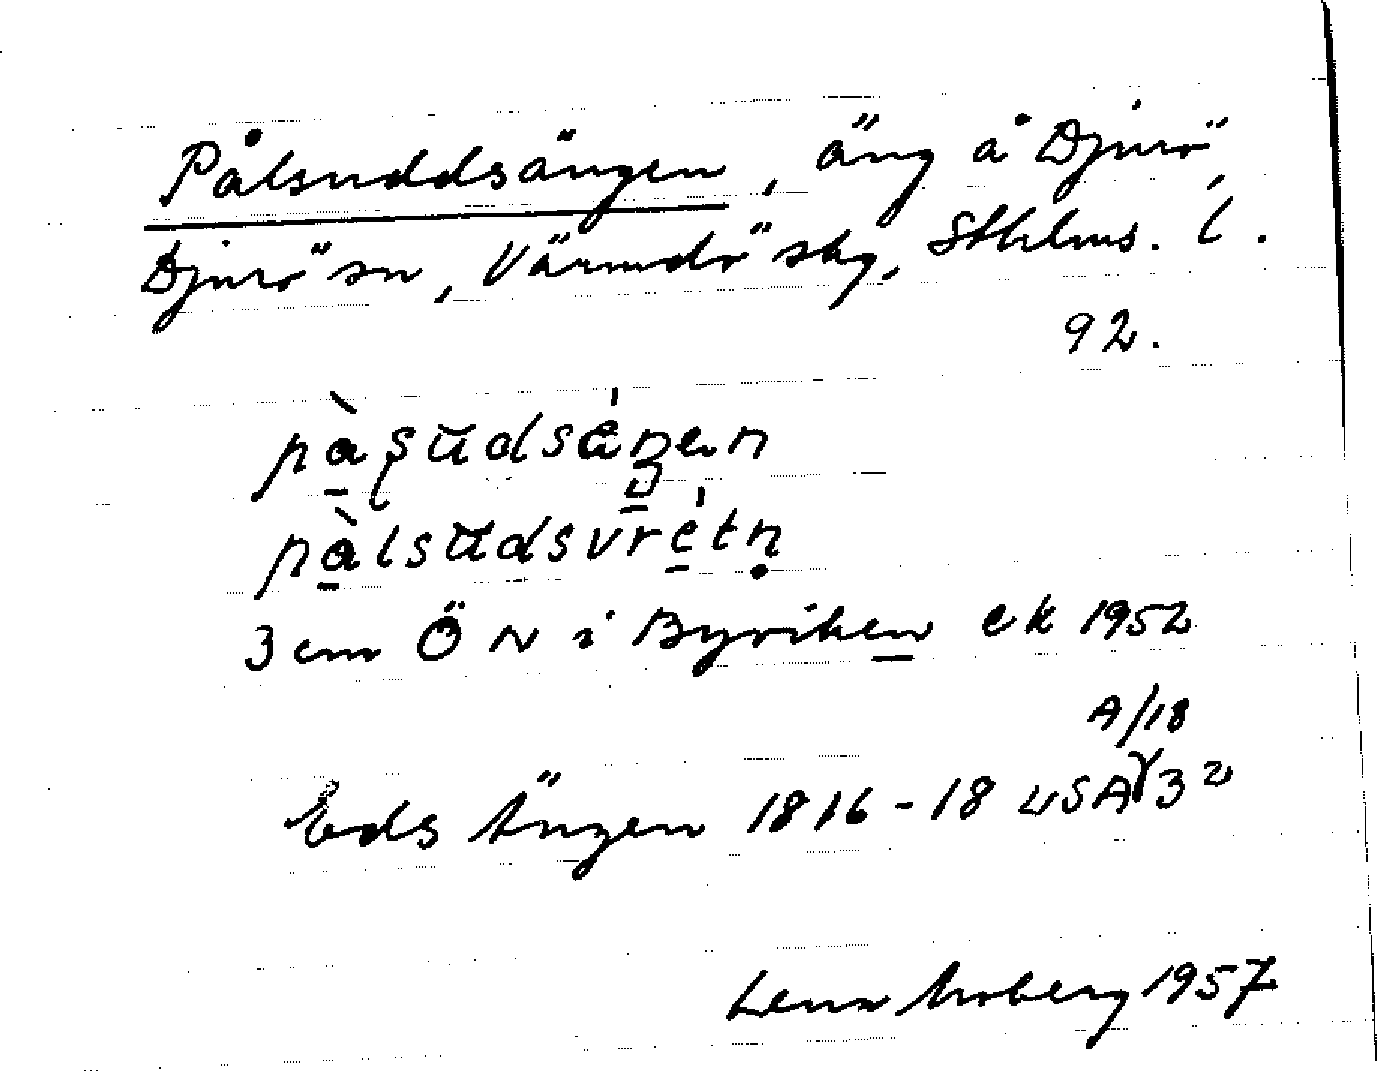 Pålsuddsängen, äng å Djurö,
Djurö sn, Värmdö skg, Sthlms. l.
92.
pàșŭdsä́ŋen
pàlsŭdsvrétṇ
3 cm ÖN i Byviken ek 1952
A/18
Eds Ängen 1816-18 LSA 3²
Lena Moberg 1957